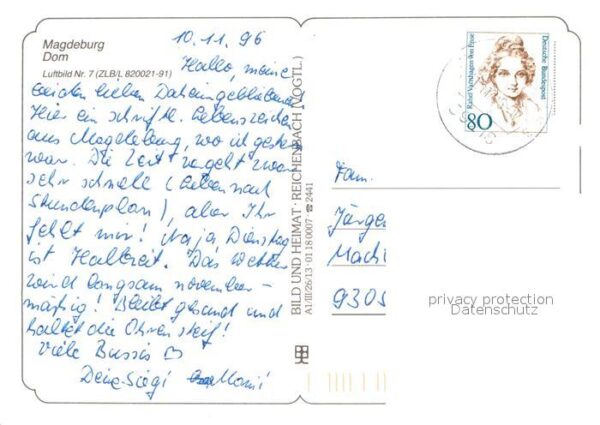 Magdeburg
Dom
Luftbild Nr. 7 (ZLB/L 820021-91)
10.11.96
Hallo, meine
beiden lieben Daheimgebliebenen
Hier ein schriftl. Lebenszeichen
aus Magdeburg, wo ich gestern
war. Die Zeit vergeht zwar
sehr schnell (Leben nach
Stundenplan), aber Ihr
fehlt mir! Na ja, Dienstag
ist Halbzeit. Das Wetter
wird langsam november-
mäßig! Bleibt gesund und
haltet die Ohren steif!
Viele Bussis ♡
Deine Siegi Mami
BILD UND HEIMAT · REICHENBACH (VOGTL.)
A1/III/26/13 · 01 18 0007 · ☎ 2441
Rahel Varnhagen von Ense
Deutsche Bundespost
80
Fam.
Jürgen
Mach
9305
privacy protection
Datenschutz